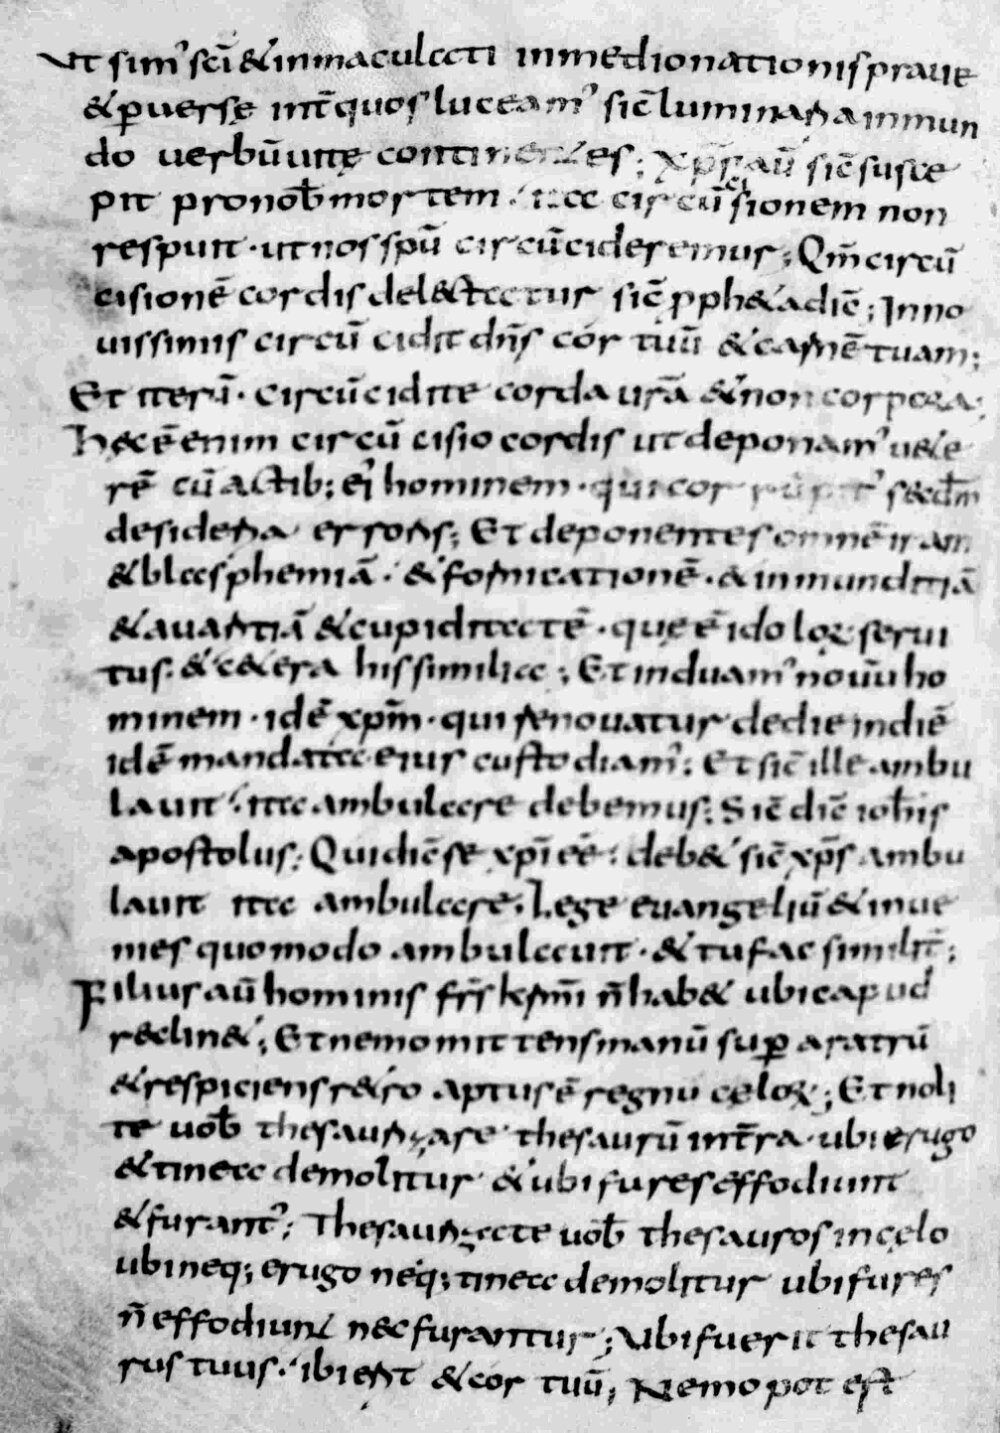 Ut sim' sc̄i & inmaculati in medio nationis praue
& ꝑuersę int̄ quos luceam' sic̄ luminaria in mun
do uerbū uitę continentes; xp̄s aū sic̄ susce
pit pro nob̄ mortem · ita circūcisionem non
respuit · ut nos spū circūcideremus; Qm̄ circū
cisionē cordis delectatur sic̄ ꝓph&a dic̄; In no
uissimis circūcidit dn̄s cor tuū & carnē tuam;
Et iterū · circūcidite corda ur̄a & non corpora;
Hęc ē enim circū cisio cordis ut deponam' u&e
rē cū actib; ei' hominem · qui corrūpit' secdm̄
desideria erroris; Et deponentes omnē iram
& blasphemiā · & fornicationē · & inmunditiā
& auaritiā & cupiditatē · quę ē idoloꝝ serui
tus · & c&era his similia; Et induam' nouū ho
minem · idē xp̄m · qui renouatur de die in diē
idē mandata eius custodiam'; Et sic̄ ille ambu
lauit · ita ambulare debemus; Sic̄ dic̄ ioh̄is
apostolus; Qui dic̄ se xp̄i eē · deb& sic̄ xp̄s ambu
lauit ita ambulare. Lege euangeliū & inue
nies quomodo ambulauit · & tu fac similit̄;
Filius aū hominis fr̄s kr̄mi n̄ hab& ubi capud
reclin&; Et nemo mittens manū suꝑ aratrū
& respiciens r&ro aptus ē regnū cęloꝝ; Et noli
te uob̄ thesaurizare thesaurū in tr̄ra · ubi erugo
& tinea demolitur & ubi fures effodiunt
& furant'; Thesaurizate uob̄ thesauros in cęlo
ubi neq; erugo neq; tinea demolitur ubi fures
n̄ effodiunt nec furantur; Ubi fuerit thesau
rus tuus · ibi erit & cor tuū; Nemo pot est